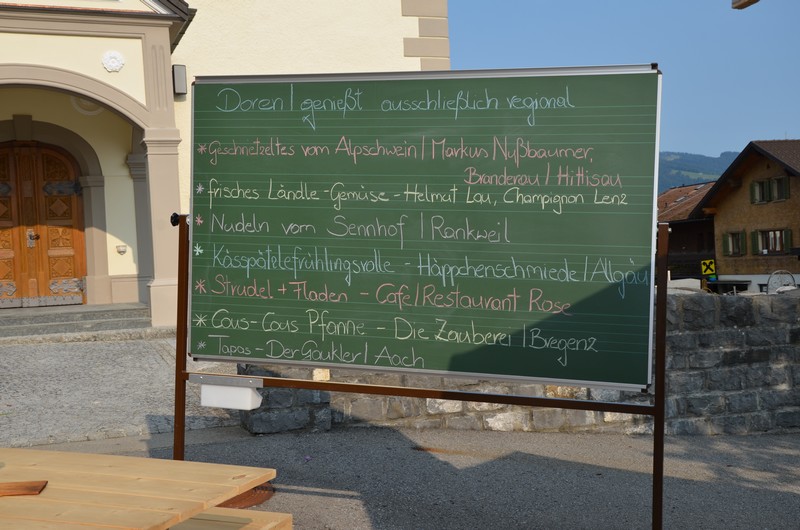 Doren | genießt ausschließlich regional
* Geschnetzeltes vom Alpschwein | Markus Nußbaumer,
Branderau | Hittisau
* frisches Ländle-Gemüse - Helmut Lau, Champignon Lenz
* Nudeln vom Sennhof | Rankweil
* Kässpätzlefrühlingsrolle - Häppchenschmiede | Allgäu
* Strudel + Fladen - Cafe/Restaurant Rose
* Cous-Cous Pfanne - Die Zauberei | Bregenz
* Tapas - Der Gaukler | Aach